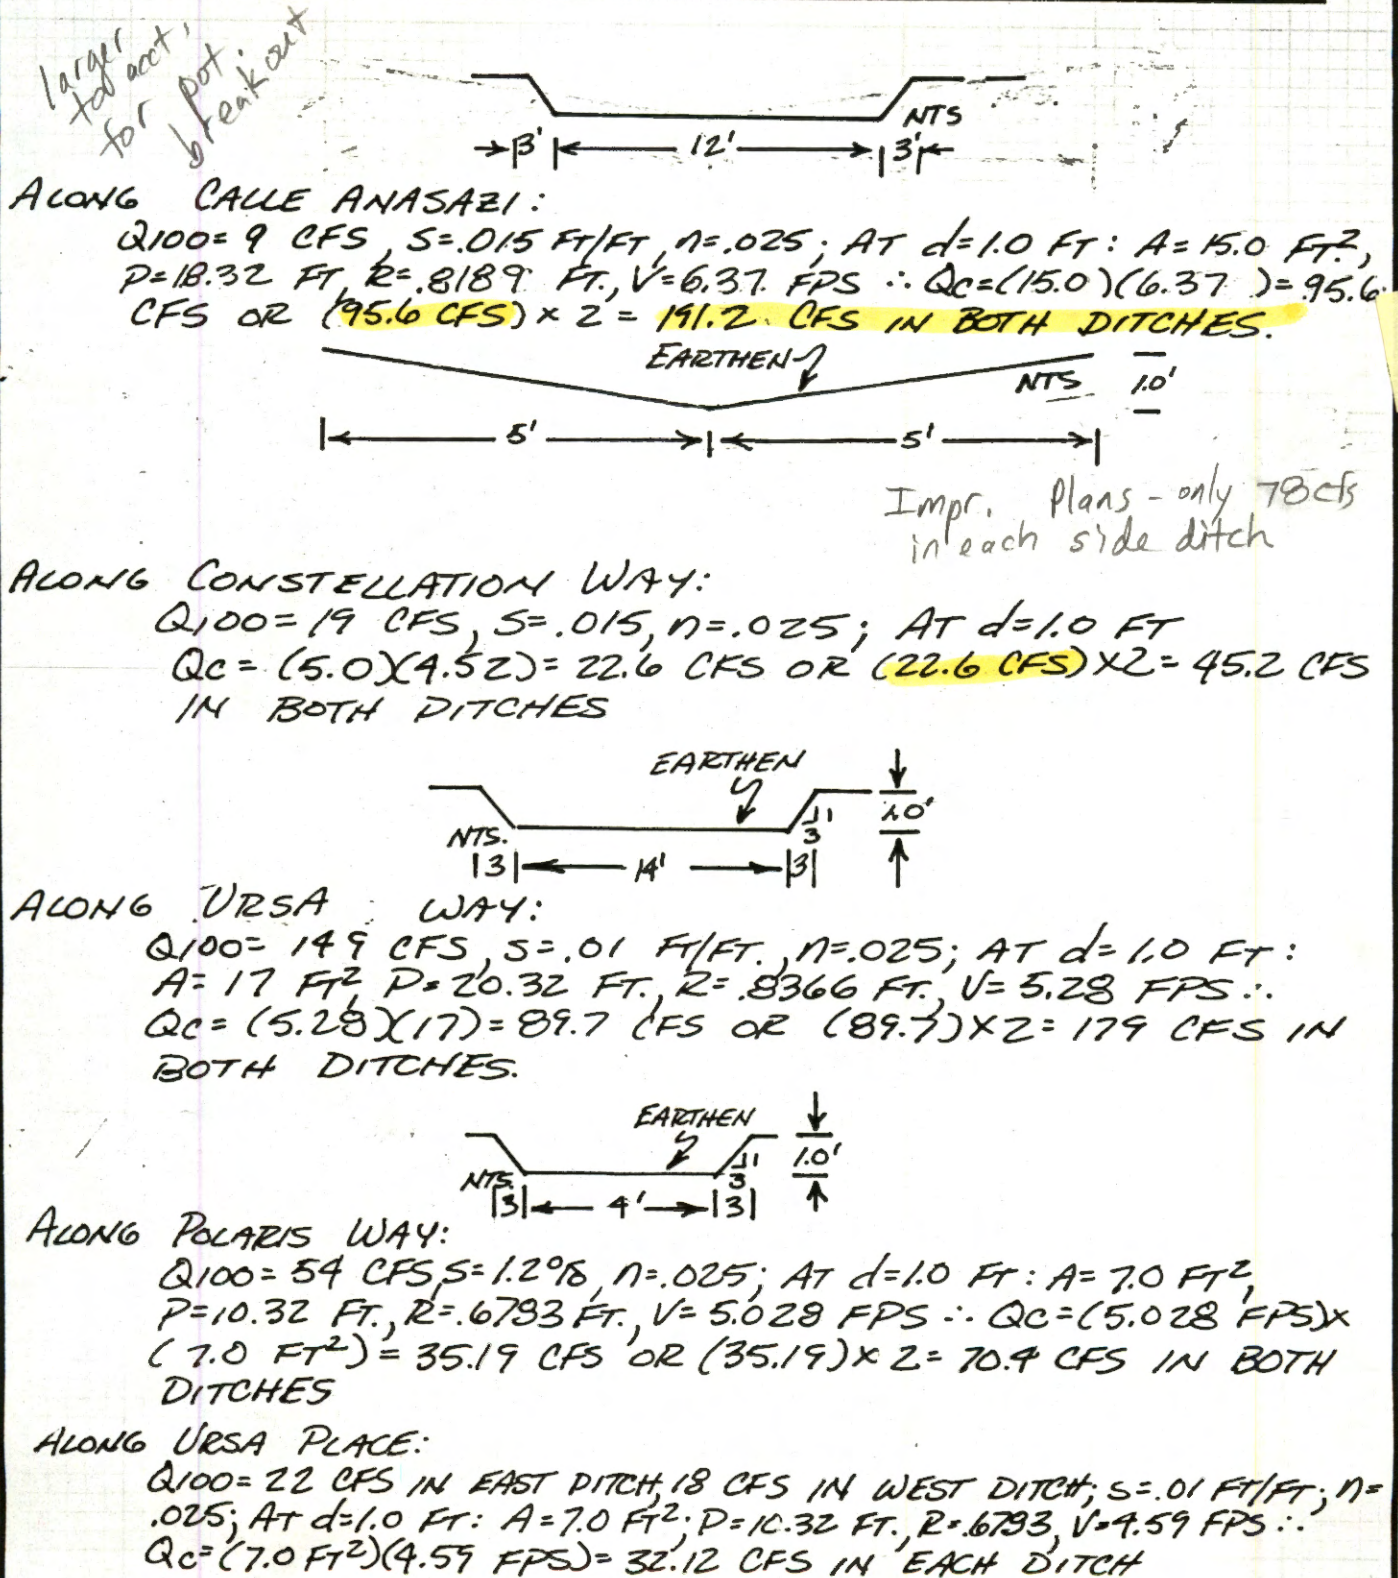 larger
to acct,
for pot.
breakout
NTS
3' 12' 3'
ALONG CALLE ANASAZI:
Q100= 9 CFS, S=.015 FT/FT, n=.025; AT d=1.0 FT: A=15.0 FT²,
P=18.32 FT, R=.8189 FT., V=6.37 FPS ∴ QC=(15.0)(6.37 )=95.6
CFS OR (95.6 CFS) × 2 = 191.2 CFS IN BOTH DITCHES.
EARTHEN
NTS 1.0'
5' 5'
Impr. Plans - only 78cfs
in each side ditch
ALONG CONSTELLATION WAY:
Q100= 19 CFS, S=.015, n=.025; AT d=1.0 FT
QC= (5.0)(4.52)= 22.6 CFS OR (22.6 CFS)×2= 45.2 CFS
IN BOTH DITCHES
EARTHEN
1.0'
1
NTS. 3
3 14' 3
ALONG URSA WAY:
Q100= 149 CFS, S=.01 FT/FT., n=.025; AT d=1.0 FT:
A= 17 FT², P=20.32 FT., R=.8366 FT., V=5.28 FPS ∴
QC= (5.28)(17)=89.7 CFS OR (89.7)×2=179 CFS IN
BOTH DITCHES.
EARTHEN
1 1.0'
NTS. 3
3 4' 3
ALONG POLARIS WAY:
Q100= 54 CFS, S=1.2%, n=.025; AT d=1.0 FT: A=7.0 FT²,
P=10.32 FT., R=.6783 FT., V=5.028 FPS ∴ QC=(5.028 FPS)×
(7.0 FT²)=35.19 CFS OR (35.19)×2=70.4 CFS IN BOTH
DITCHES
ALONG URSA PLACE:
Q100= 22 CFS IN EAST DITCH, 18 CFS IN WEST DITCH; S=.01 FT/FT; n=
.025; AT d=1.0 FT: A=7.0 FT²; P=10.32 FT., R=.6783, V=4.59 FPS ∴
QC=(7.0 FT²)(4.59 FPS)= 32.12 CFS IN EACH DITCH